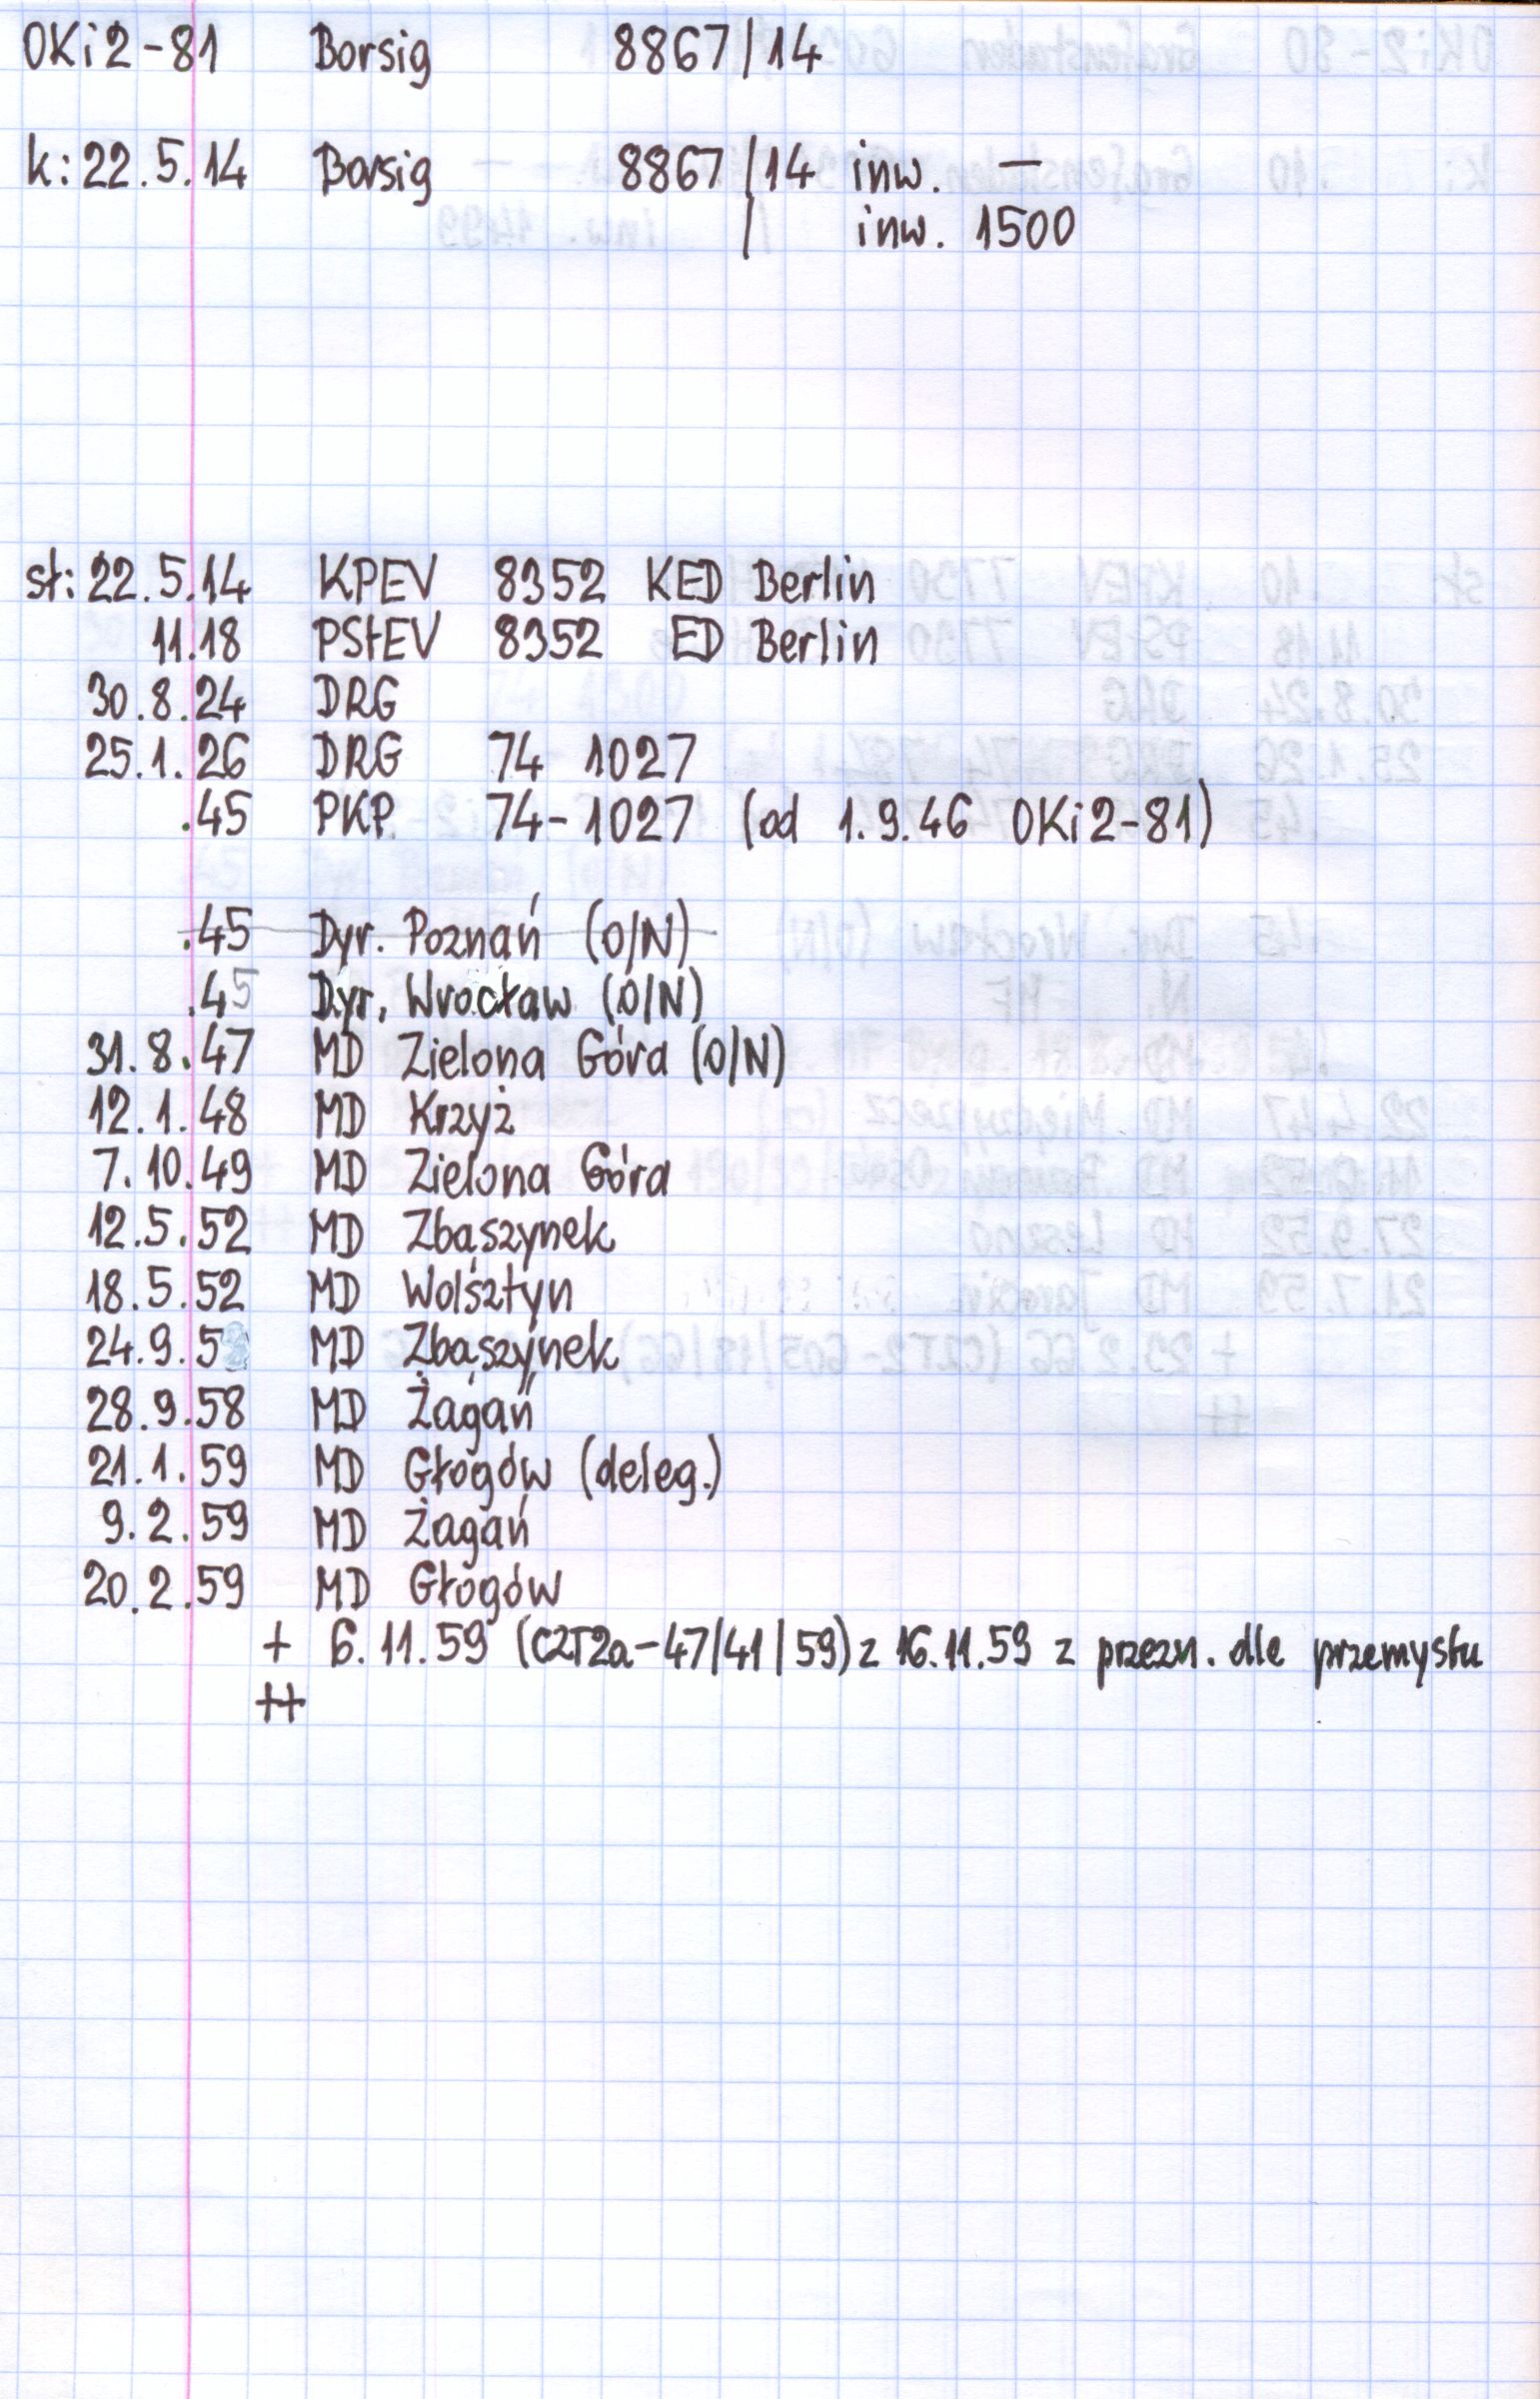 OKi2-81 Borsig 8867/14
k: 22.5.14 Borsig 8867/14 inw. —
/ inw. 1500
st: 22.5.14 KPEV 8352 KED Berlin
11.18 PStEV 8352 ED Berlin
30.8.24 DRG
25.1.26 DRG 74 1027
.45 PKP 74-1027 (od 1.9.46 OKi2-81)
.45 Dyr. Poznań (O/N)
.45 Dyr. Wrocław (O/N)
31.8.47 MD Zielona Góra (O/N)
12.1.48 MD Krzyż
7.10.49 MD Zielona Góra
12.5.52 MD Zbąszynek
18.5.52 MD Wolsztyn
24.9.53 MD Zbąszynek
28.9.58 MD Żagań
21.1.59 MD Głogów (deleg.)
9.2.59 MD Żagań
20.2.59 MD Głogów
+ 6.11.59 (CZT2a-47/41/59) z 16.11.59 z przezn. dle przemysłu
++